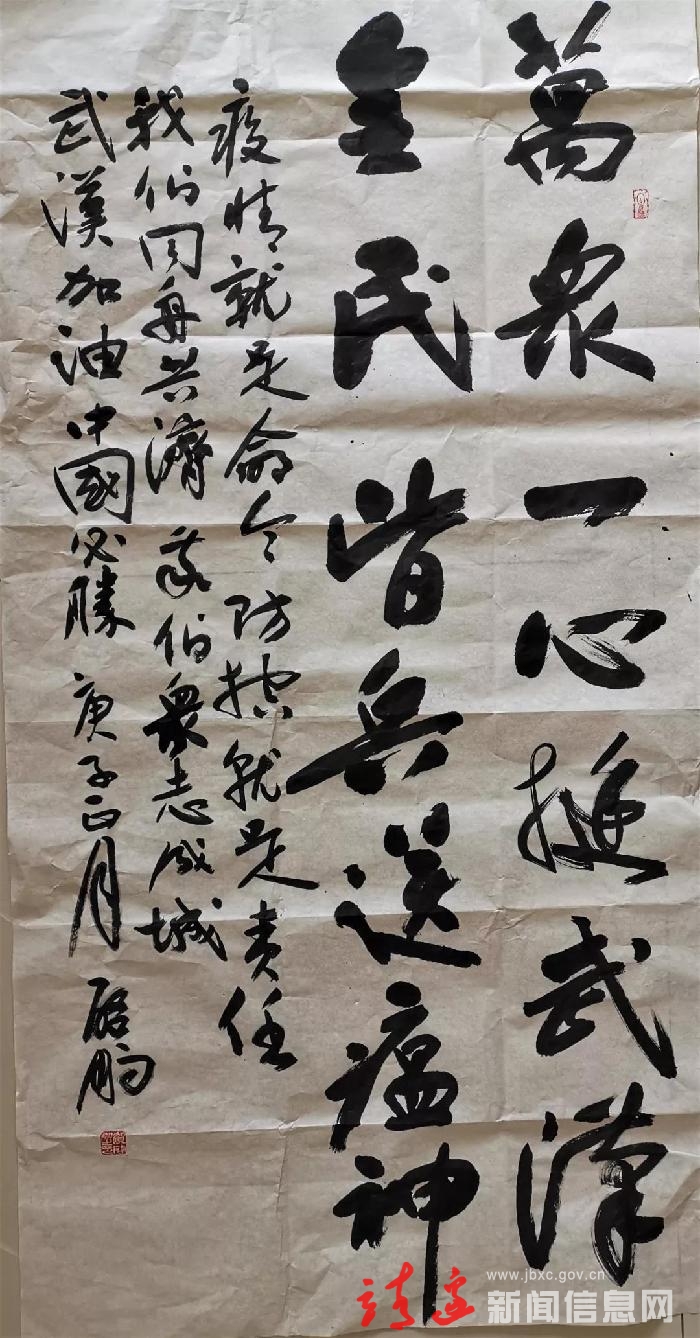 萬衆一心挺武漢
全民皆兵送瘟神
疫情就是命令防控就是责任
我们同舟共濟我们衆志成城
武漢加油中國必勝 庚子正月
靖边 www.jbxc.gov.cn
新闻信息网